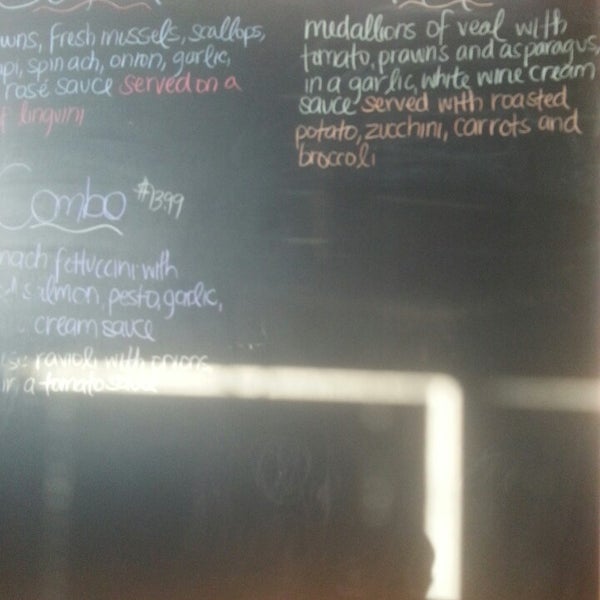 wns, fresh mussels, scallops,
pi, spinach, onion, garlic,
rosé sauce served on a
f linguini
Combo $13.99
nach fettuccini with
salmon, pesto, garlic,
cream sauce
ravioli with onions
in a tomato sauce
medallions of veal with
tomato, prawns and asparagus,
in a garlic, white wine cream
sauce served with roasted
potato, zucchini, carrots and
broccoli